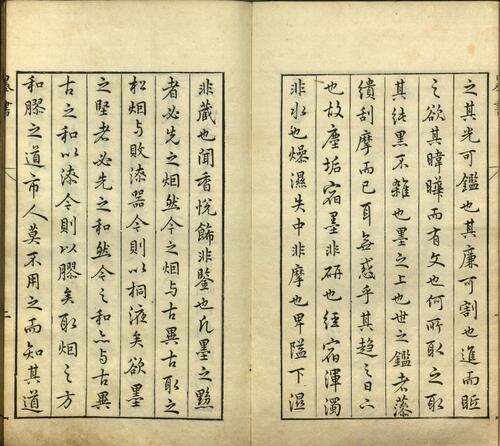 之其光可鑑也其廉可割也進而眂
之欲其暐曄而有文也何所取之取
其純黑不雜也墨之上也世之鑑者藻
繢刮摩而已耳無惑乎其趨之日下
也故塵垢宿墨非研也經宿渾濁
非水也燥濕失中非摩也卑隘下濕
非藏也聞香悅飾非鑒也凡墨之黟
者必先之烟然今之烟与古異古取之
松烟与敗漆器今則以桐液矣欲墨
之堅者必先之和然今之和亦与古異
古之和以漆今則以膠矣取烟之方
和膠之道市人莫不用之而知其道